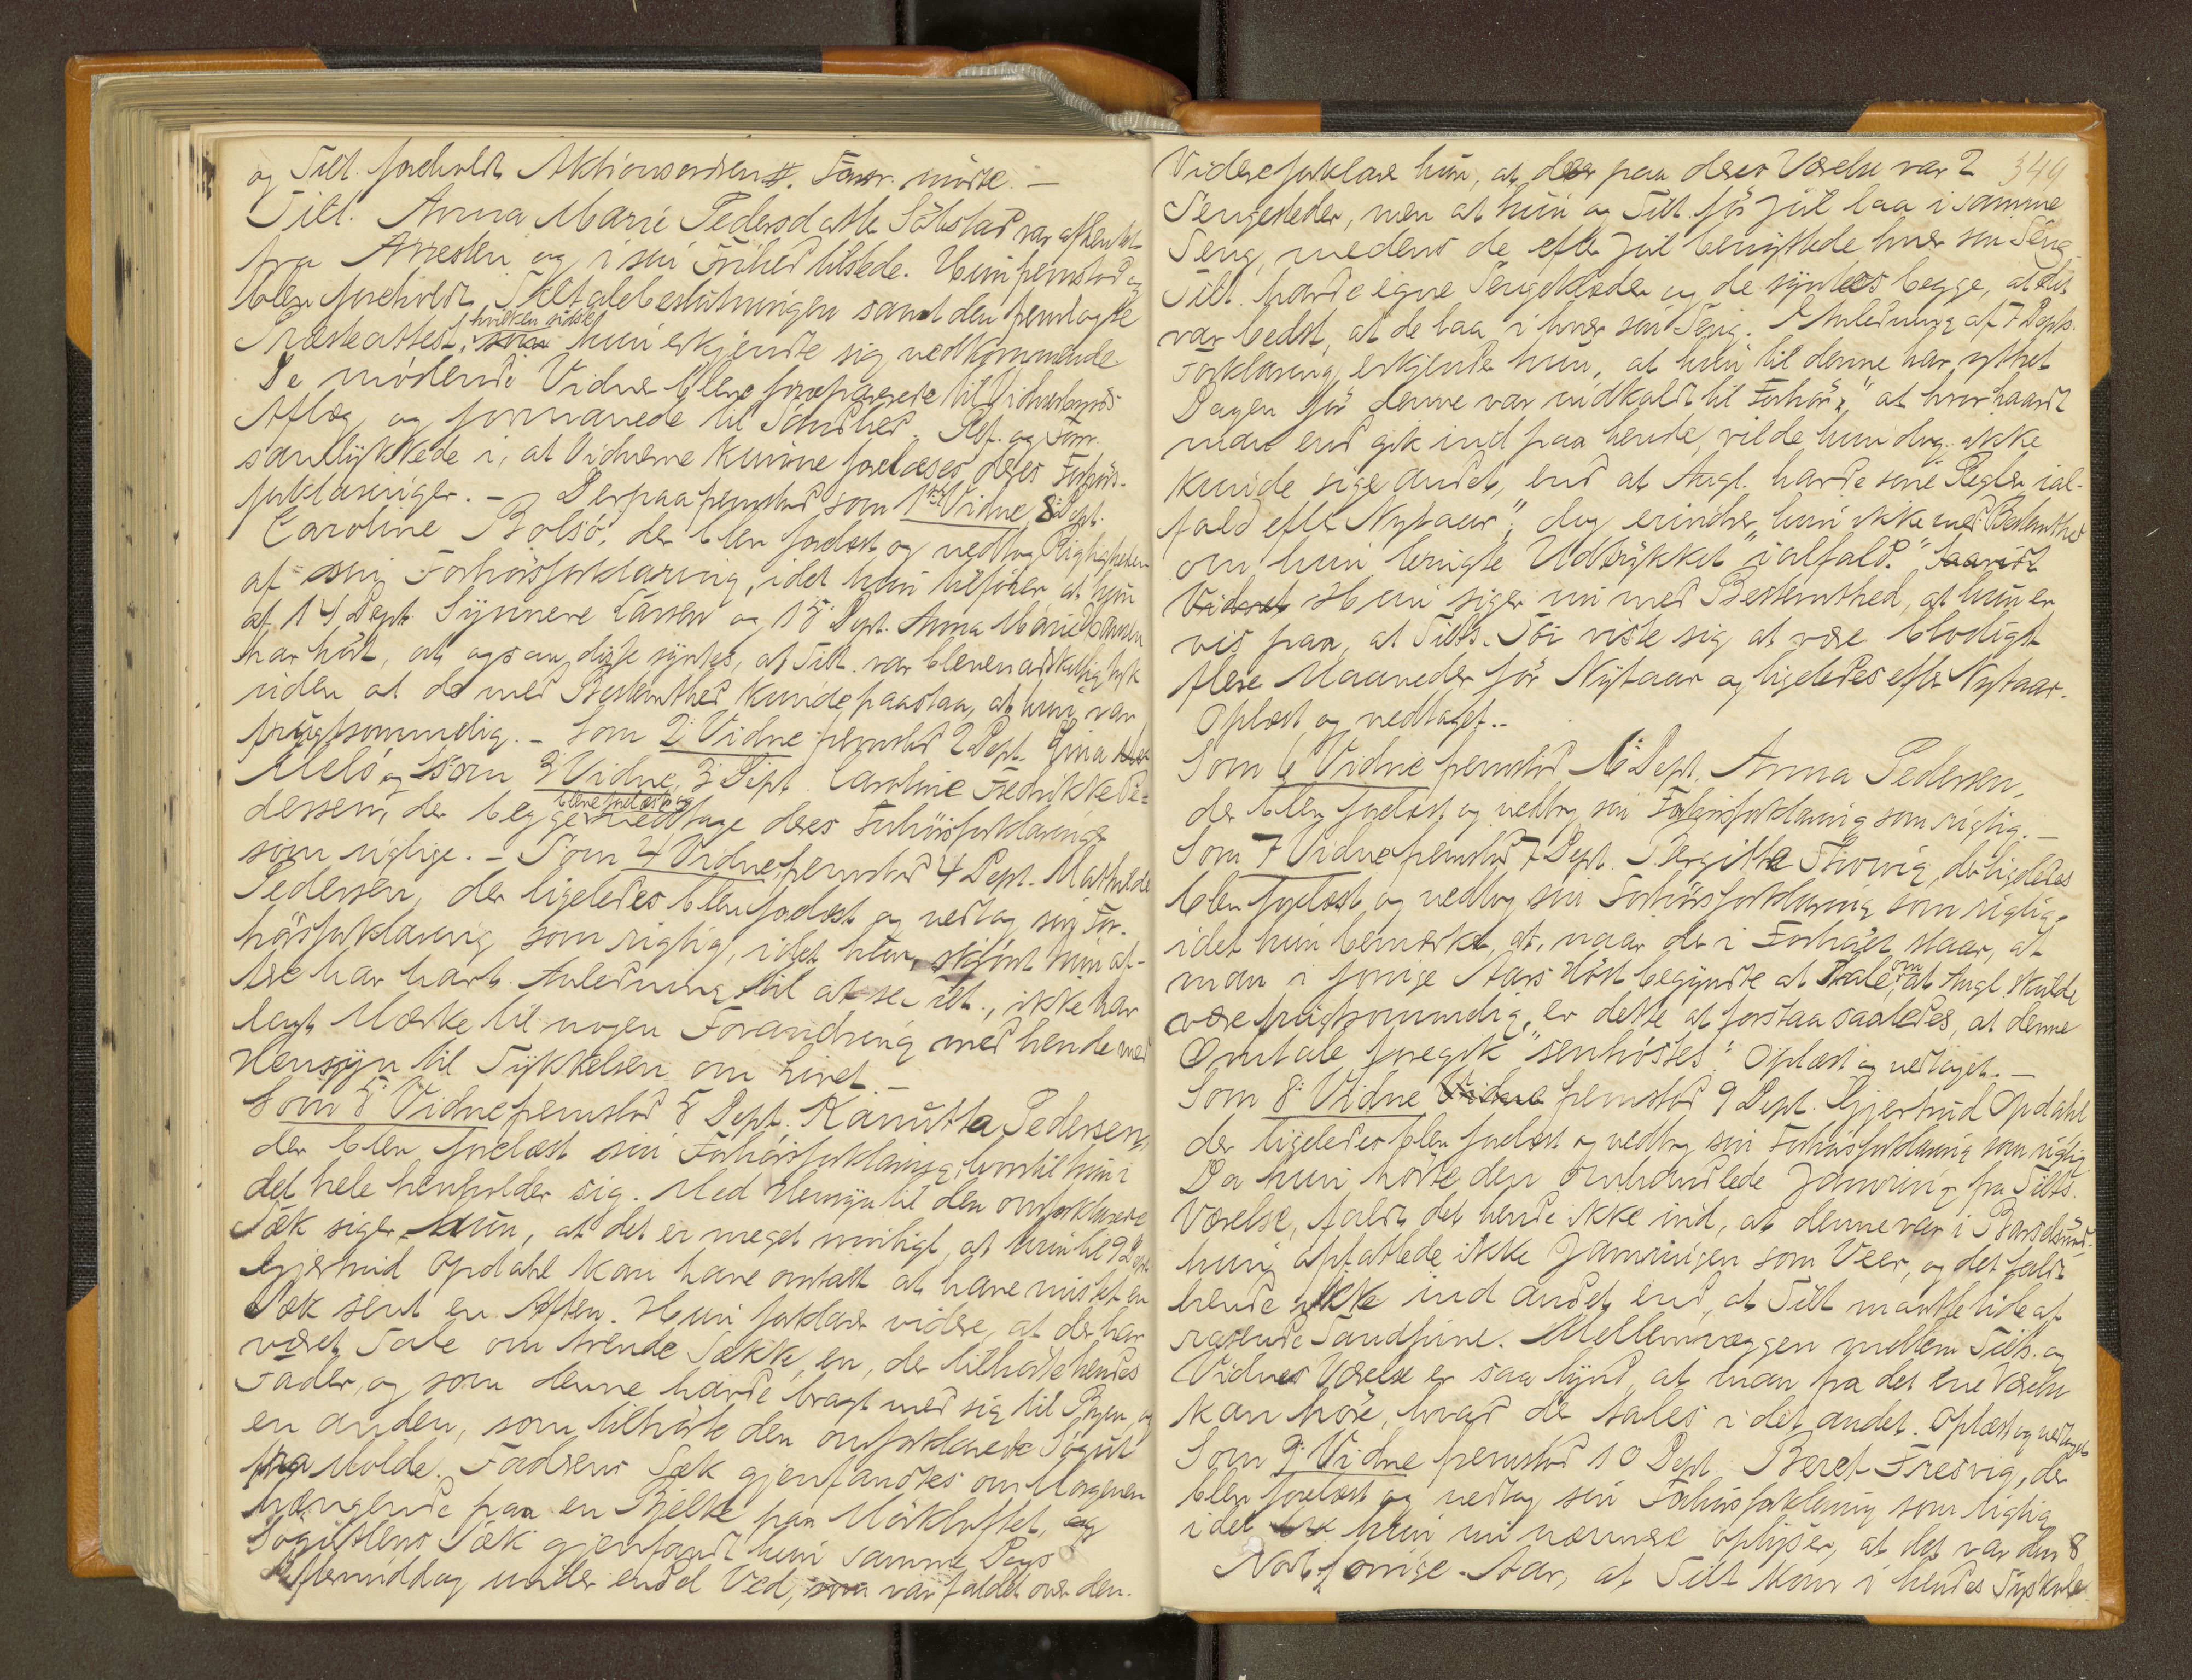 og Tilt. foreholdt Aktionsordren. Forsv. mødte. —
Tilt. Anna Marie Pedersdatter Sölstad var afhentet
fra Arresten og i sin Frihed tilstede. Hun fremstod og
blev foreholdt Tiltalebeslutningen samt den fremlagte
Præsteattest, hvilken sidste hun erkjendte sig vedkommende
De mødende Vidner bleve præparerede til Vidnesbyrds
Aflæg og formanede til Sandhed. Akt. og Forsv.
samtykkede i, at Vidnerne kunne forelæses deres Forhörs-
forklaringer. — Derpaa fremstod som 1ste Vidne 8 Dept.
Caroline Bolsö, der blev forelæst og vedtog Rigtigheden
af sin Forhörsforklaring, idet hun tilföier at hun
af 14 Dept. Synnøve Larsen og 15 Dept. Anna Marie Hansen
har hört, at ogsaa disse syntes, at Tilt. var bleven adskillig tyk
uden at de med Bestemthed kunde paastaa, at hun var
frugtsommelig. — Som 2 Vidne fremstod 2 Dept. Gina
Melö og som 3 Vidne 3 Dept. Caroline Fredrikke Pe=
dersen, der begge bleve forelæst og vedtage deres Forhörsforklaringer
som rigtige. — Som 4 Vidne fremstod 4 Dept. Mathilde
Pedersen, der ligeledes blev forelæst og vedtog sin For-
hörsforklaring som rigtig, idet hun, skjönt hun of-
tere har havt Anledning til at se Tilt., ikke har
lagt Mærke til nogen Forandring med hende med
Hensyn til Tykkelsen om Livet. —
Som 5 Vidne fremstod 5 Dept. Kanutta Pedersen,
der blev forelæst sin Forhörsforklaring, hvortil hun i
det hele henholder sig. Med Hensyn til den omforklarede
Sæk siger hun, at det er meget muligt, at hun til 9 Dept.
Gjertrud Opdahl kan have omtalt at have mistet en
Sæk sent en Aften. Hun forklarer videre, at der har
været Tale om trende Sække, en, der tilhörte hendes
Fader, og som denne havde bragt med sig til Byen, og
en anden, som tilhörte den omforklarede
fra Molde. Faderens Sæk gjenfandtes om Morgenen
hængende paa en Bjelke paa Mörkloftet, og
Sæk gjenfandt hun samme Dags
Eftermiddag under endel Ved, som var faldet over den.
349
Videre forklarer hun, at der paa deres Værelse var 2
Sengesteder, men at hun og Tilt. för Jul laa i samme
Seng, medens de efter Jul benyttede hver sin Seng
Tilt. havde egne Sengeklæder og de syntes begge, at det
var bedst, at de laa i hver sin Seng. I Anledning af 7 Depts.
Forklaring erkjender hun, at hun til denne har yttret
Dagen för denne var indkaldt til Forhör, "at hvor haardt
man end gik ind paa hende, vilde hun dog ikke
kunde sige andet, end at Angl. havde sine Regler ial-
fald efter Nytaar", dog erindrer hun ikke med Bestemthed
om hun brugte Udtrykket "ialfald."
Vidnet Hun siger nu med Bestemthed, at hun er
vis paa, at Tilts. Töi viste sig at være blodigt
flere Maaneder för Nytaar og ligeledes efter Nytaar.
Oplæst og vedtaget. —
Som 6 Vidne fremstod 6 Dept. Anna Pedersen,
der blev forelæst og vedtog sin Forhörsforklaring som rigtig. —
Som 7 Vidne fremstod 7 Dept. Bergitte, der ligeledes
blev forelæst og vedtog sin Forhörsforklaring som rigtig,
idet hun bemærker, at, naar der i Forhöret staar, at
man i forrige Aars Höst begyndte at tale om, at Angl. skulde
være frugtsommelig, er dette at forstaa saaledes, at denne
Omtale foregik "senhöstes". Oplæst og vedtaget. —
Som 8 Vidne Vidne fremstod 9 Dept. Gjertrud Opdahl
der ligeledes blev forelæst og vedtog sin Forhörsforklaring som rigtig
Da hun hörte den omhandlede Jamring fra Tilts.
Værelse, faldt det hende ikke ind, at denne var i Barselsnöd.
hun opfattede ikke Jamringen som Veer, og det faldt
hende ikke ind andet, end at Tilt. maatte lide af
rasende Tandpine. Mellemvæggen mellem Tilts. og
Vidnets Værelse er saa tynd, at man fra det ene Værelse
kan höre, hvad der tales i det andet. Oplæst og vedtaget
Som 9 Vidne fremstod 10 Dept. Beret Fresvig, der
blev forelæst og vedtog sin Forhörsforklaring som rigtig
idet hun nu nærmere oplyser, at det var den 8
Novbr. forrige Aar, at Tilt. kom i hendes Syskole